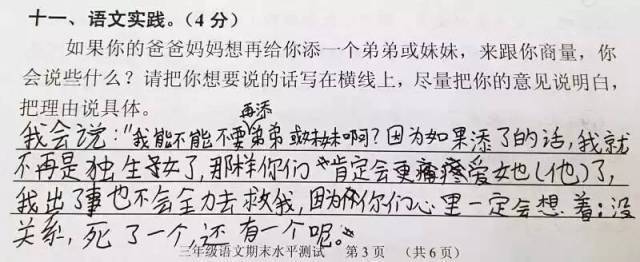 十一、语文实践。（4分）
如果你的爸爸妈妈想再给你添一个弟弟或妹妹，来跟你商量，你
会说些什么？请把你想要说的话写在横线上，尽量把你的意见说明白，
把理由说具体。
再添
我会说："我能不能不要弟弟或妹妹啊？因为如果添了的话，我就
不再是独生子女了，那样你们肯定会更疼爱她（他）了，
我出了事也不会全力去救我，因为你们心里一定会想着：没
关系，死了一个，还有一个呢。"
三年级语文期末水平测试 第3页 （共6页）